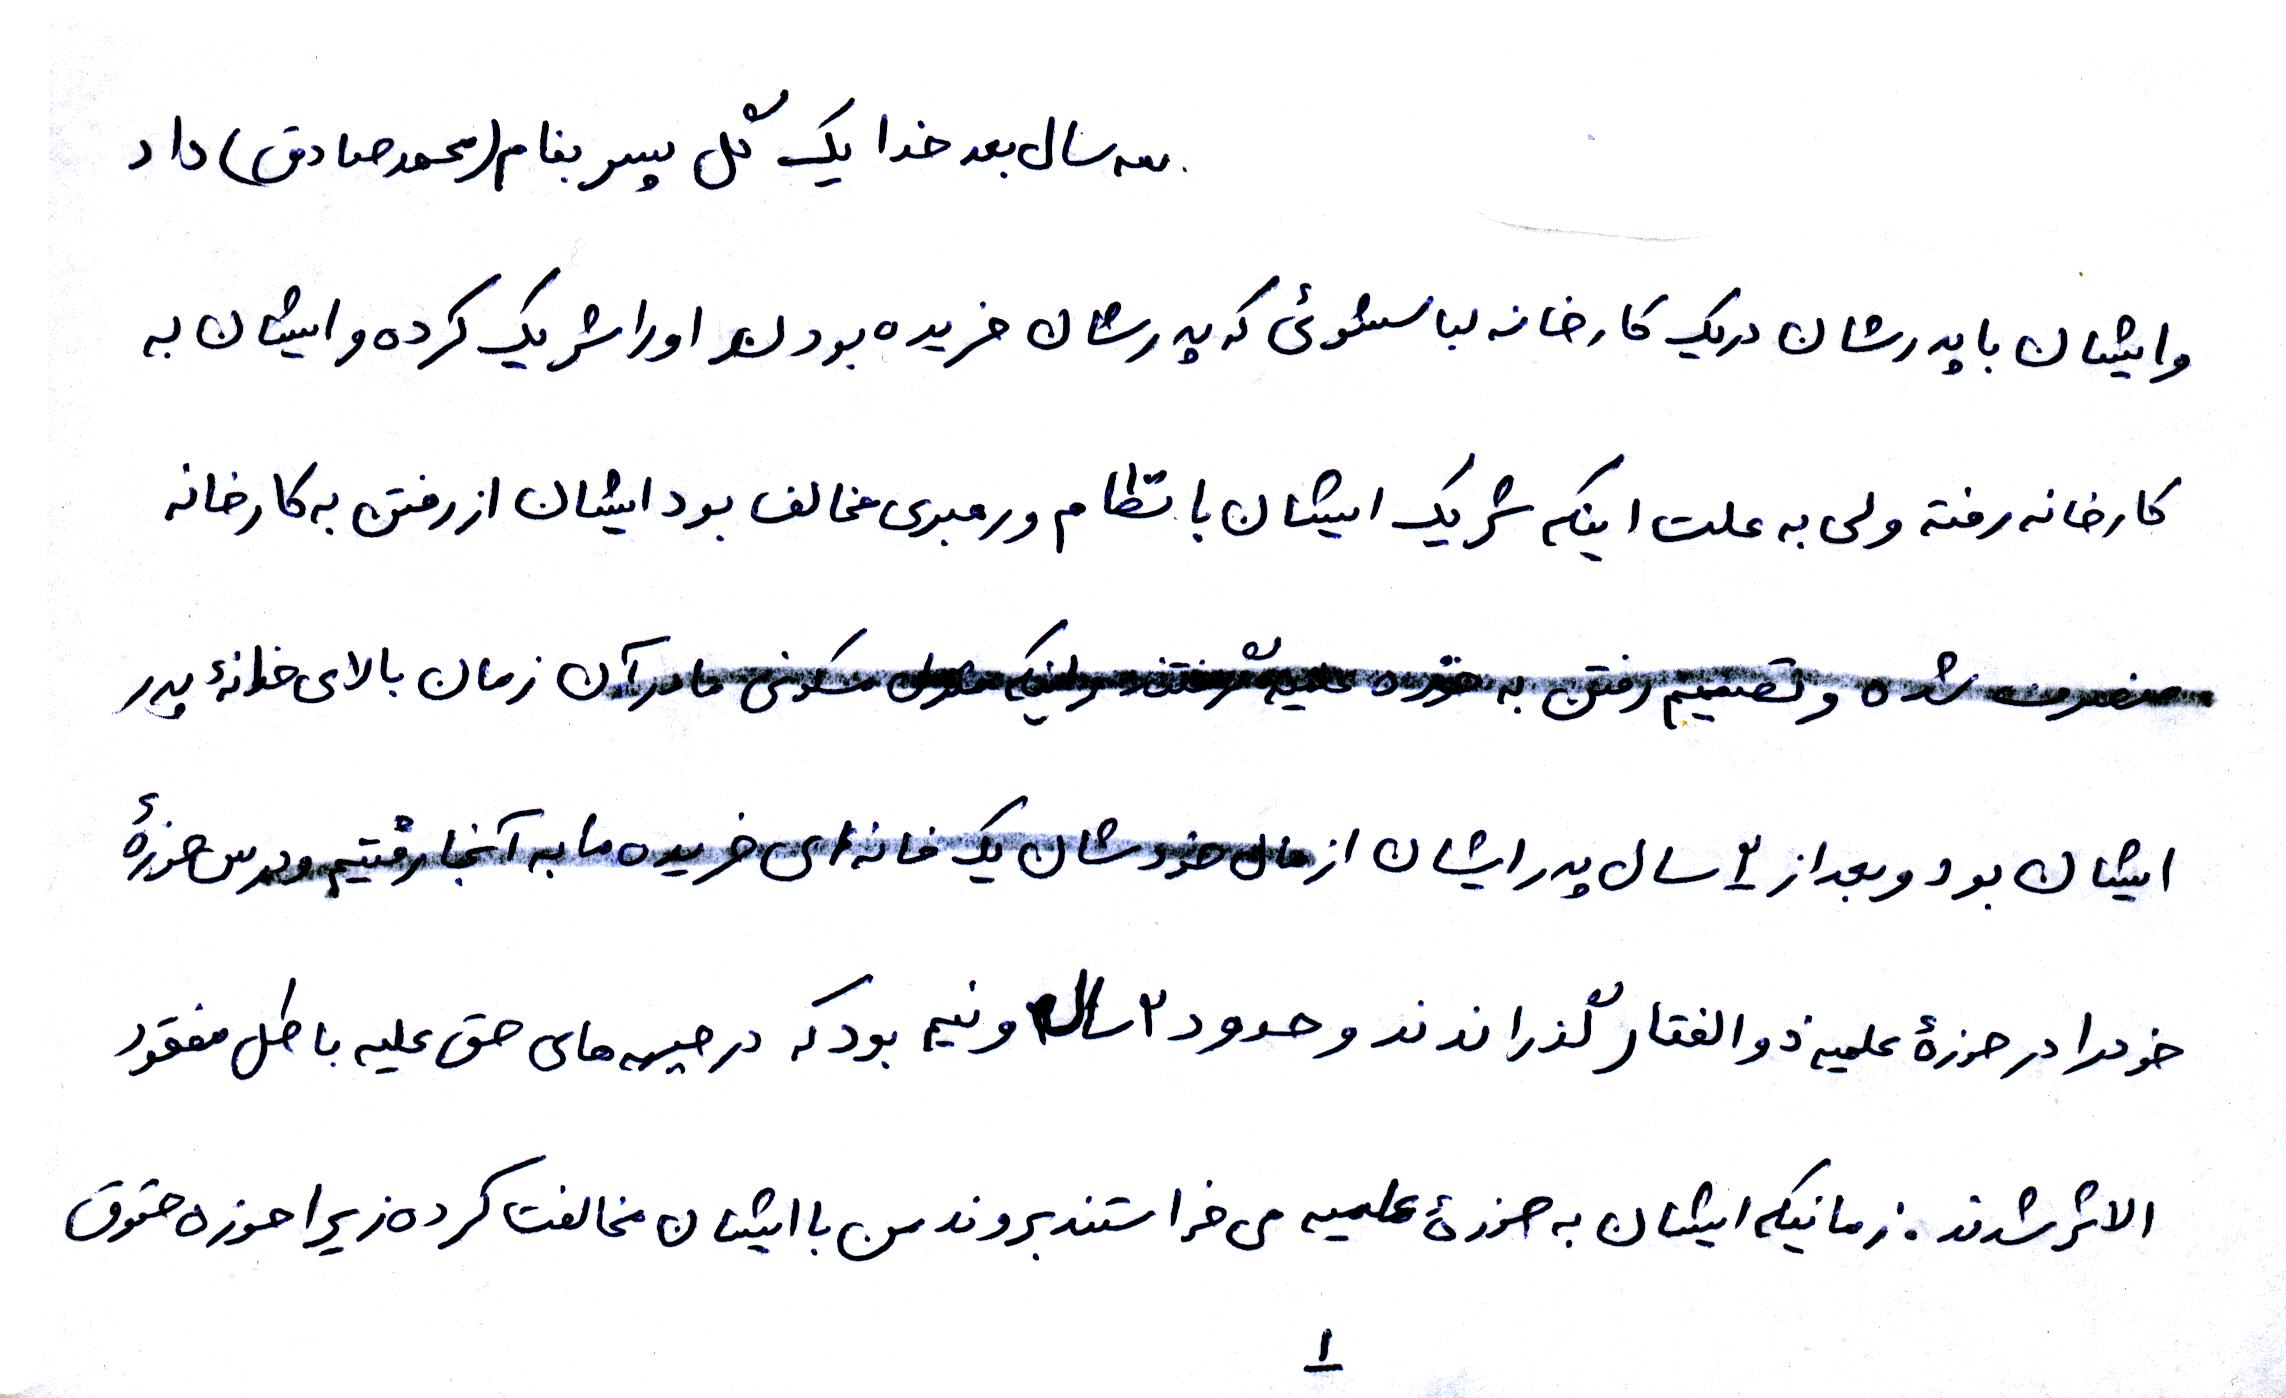 سه سال بعد خدا یک گل پسر بنام (محمد صادق) داد
و ایشان با پدرشان در یک کارخانه لباسشوئی که پدرشان خریده بودند او را شریک کرده و ایشان به
کارخانه رفته ولی به علت اینکه شریک ایشان با نظام و رهبری مخالف بود ایشان از رفتن به کارخانه
منصرف شده و تصمیم رفتن به حوزه علمیه گرفتند و اینکه منزل مسکونی ما در آن زمان بالای خانهٔ پدر
ایشان بود و بعد از ۲ سال پدر ایشان از مال خودشان یک خانه‌ای خریده ما به آنجا رفتیم و درس حوزهٔ
خود را در حوزهٔ علمیه ذوالفقار گذراندند و حدود ۲ سال و نیم بود که در جبهه‌های حق علیه باطل مفقود
الاثر شدند. زمانیکه ایشان به حوزهٔ علمیه می خواستند بروند من با ایشان مخالفت کرده زیرا حوزه حقوق
۱